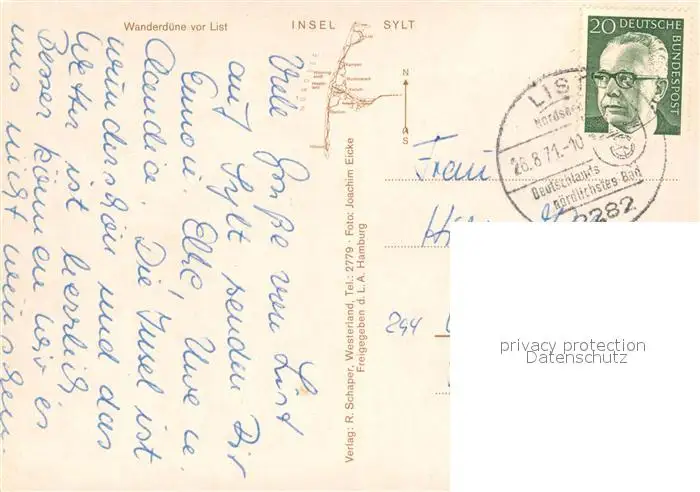 Wanderdüne vor List
INSEL SYLT
Viele Grüße von List
auf Sylt senden Dir
Elke, Uwe u.
Claudia. Die Insel ist
wunderschön und das
Wetter ist herrlich
Besser können wir es
uns nicht wünschen.
Verlag: R. Schaper, Westerland, Tel.: 2779 · Foto: Joachim Eicke
Freigegeben d. L. A. Hamburg
N
S
20 DEUTSCHE
BUNDESPOST
LIS
Nordsee
26.8.71.-10
Deutschlands
nördlichstes Bad
2282
Frau
privacy protection
Datenschutz